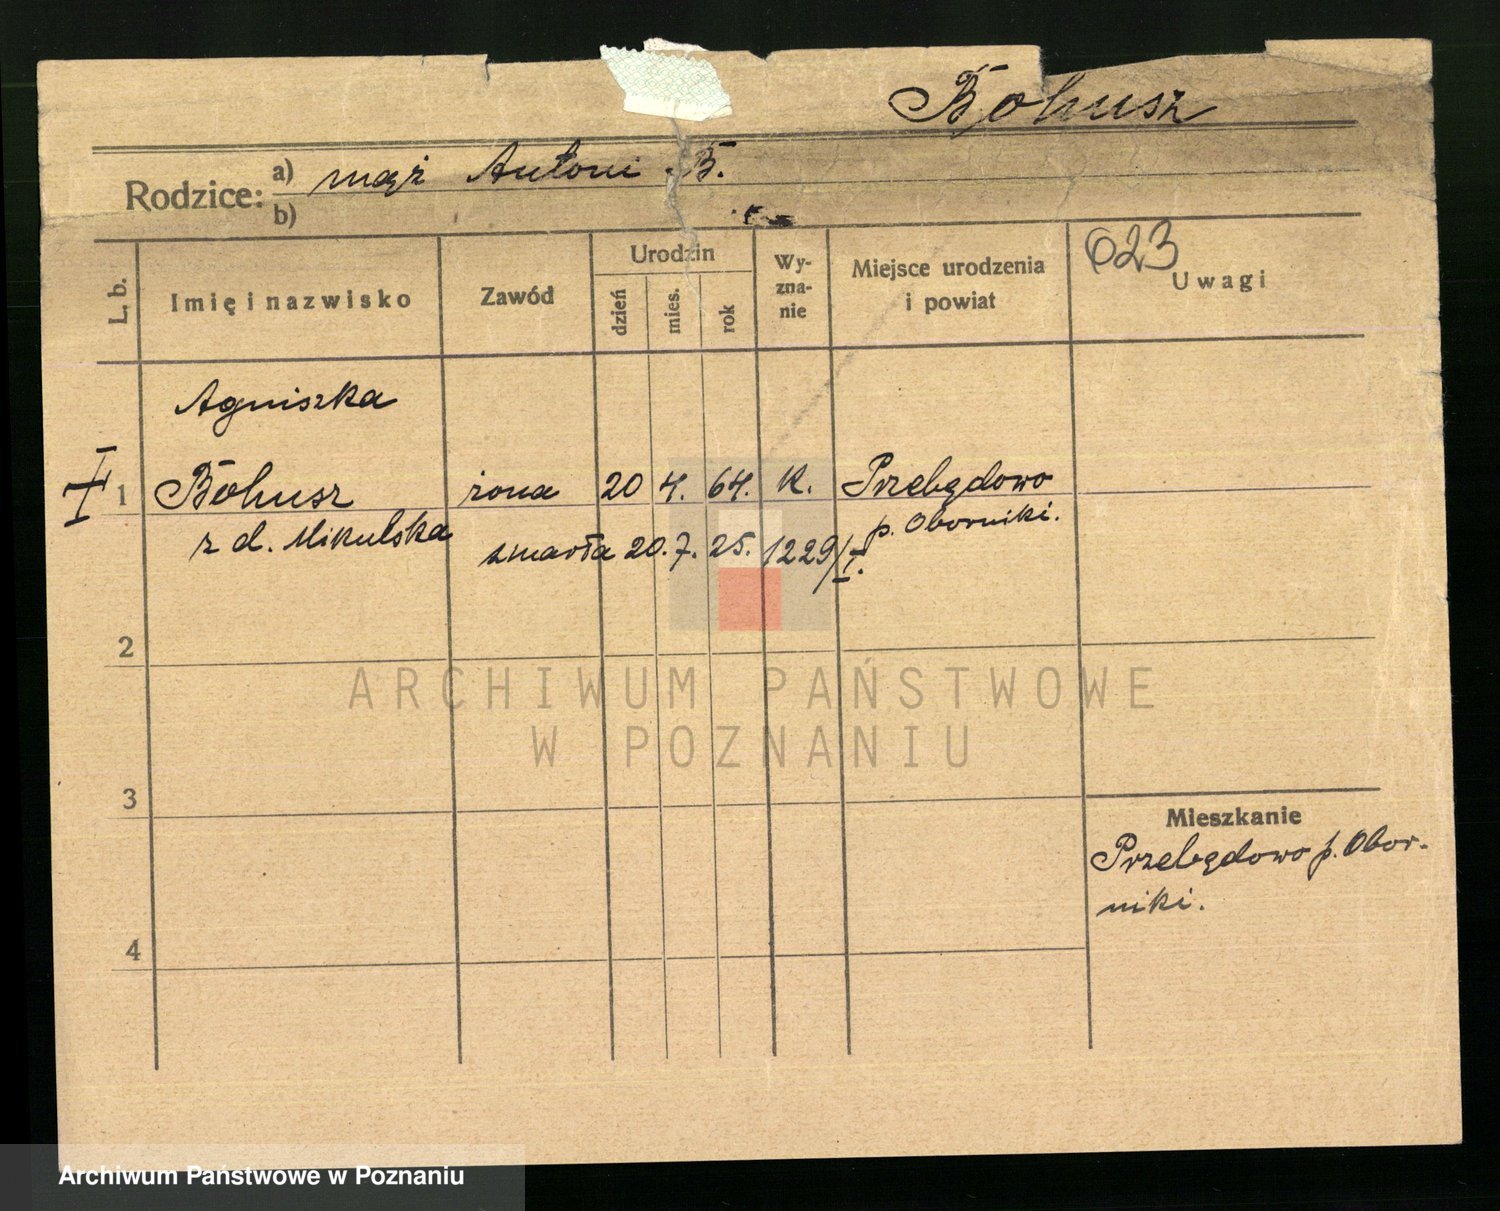 Bohusz
Rodzice: a) mąż Antoni B.
b)
L. b.
Imię i nazwisko
Zawód
Urodzin
dzień
mies.
rok
Wy-
zna-
nie
Miejsce urodzenia
i powiat
023
Uwagi
Agniszka
1 Bohusz żona 20 4. 64. K. Przebędowo
z d. Mikulska
p. Oborniki.
zmarła 20. 7. 25. 1229/I.
2
ARCHIWUM PAŃSTWOWE
W POZNANIU
3
Mieszkanie
Przebędowo p. Obor-
niki.
4
Archiwum Państwowe w Poznaniu